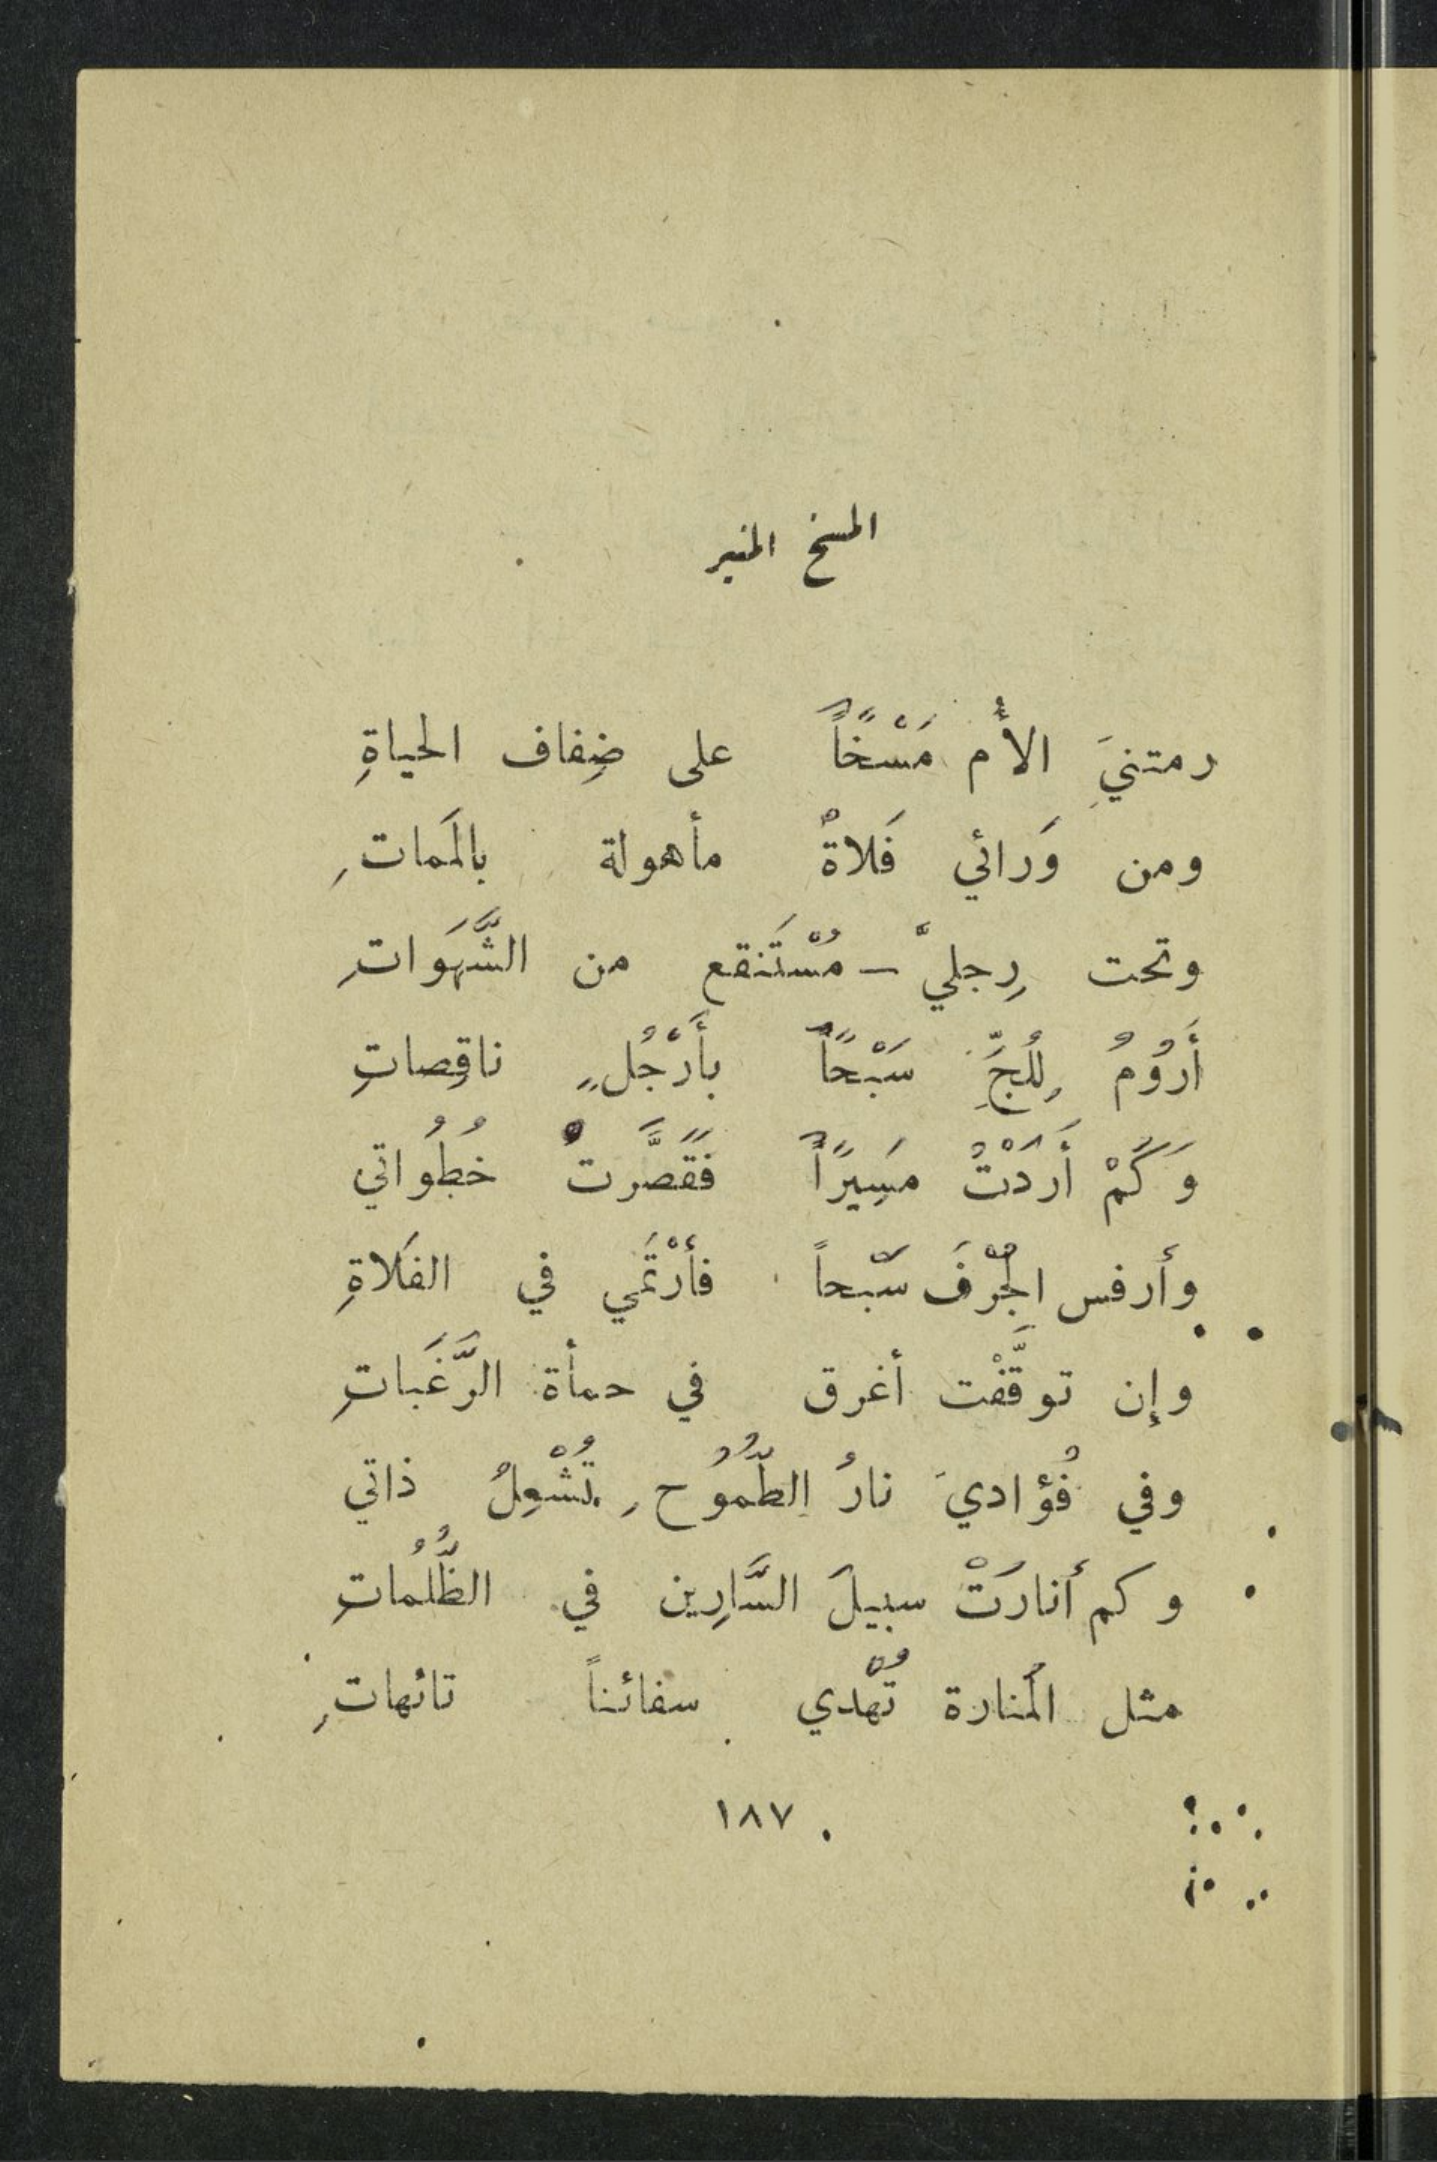 المسخ المنير
رمتنيَ الأم مَسْخاً على ضِفاف الحياةِ
ومن وَرائي فَلاةٌ مأهولة بالمَماتِ
وتحت رِجليَّ – مُسْتَنقع من الشَّهَواتِ
أَرُوُمُ لِلُجَِّ سَبْحاً بأَرْجُلٍ ناقِصاتِ
وَكَمْ أَرَدْتُ مَسِيرَاً فَقَصَّرت خُطُواتي
وأَرفس الجُرْفَ سَبحاً فأرْتَمي في الفَلاةِ
وإِن توقَّفْت أغرق في حمأة الرَّغَباتِ
وفي فُؤاديَ نارُ الطُّمُوُحِ تُشْعِلُ ذاتي
وكم أنارَتْ سبيلَ السَّارِين في الظُّلُماتِ
مثل المُنارة تُهْدي سفائناً تائهاتِ
١٨٧